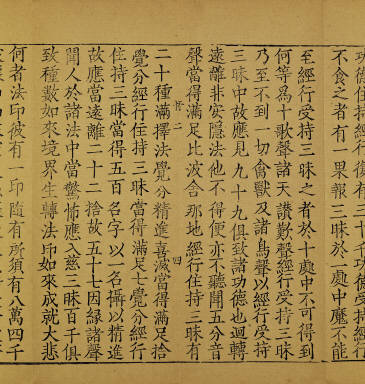 功德住持經行復有三十千功持經行
不食之者有一果報三昧於一處中魔不能
至經行受持三昧之者於十處中不可得到
何等為十歌聲諸天讚歎聲經行受持三昧
乃至不到一切禽獸及諸鳥聲以經行受持
三昧中故應見九十九俱致諸功德也迴轉
遠離非安隱法他不得便亦不聽聞五分音
聲當得滿足比波舍那地經行住持三昧有
二 四
二十種滿擇法覺分精進喜滅當得滿足捨
覺分經行住持三昧當得滿足七覺分經行
住持三昧當得五百名字以一名攝以精進
故應當遠離二十二捨故五十七因緣諸聲
聞人於諸法中當驚怖應入慈三昧百千俱
致種數如來境界生轉法印如來成就大悲
何者法印彼有一印隨有所須有八萬四千